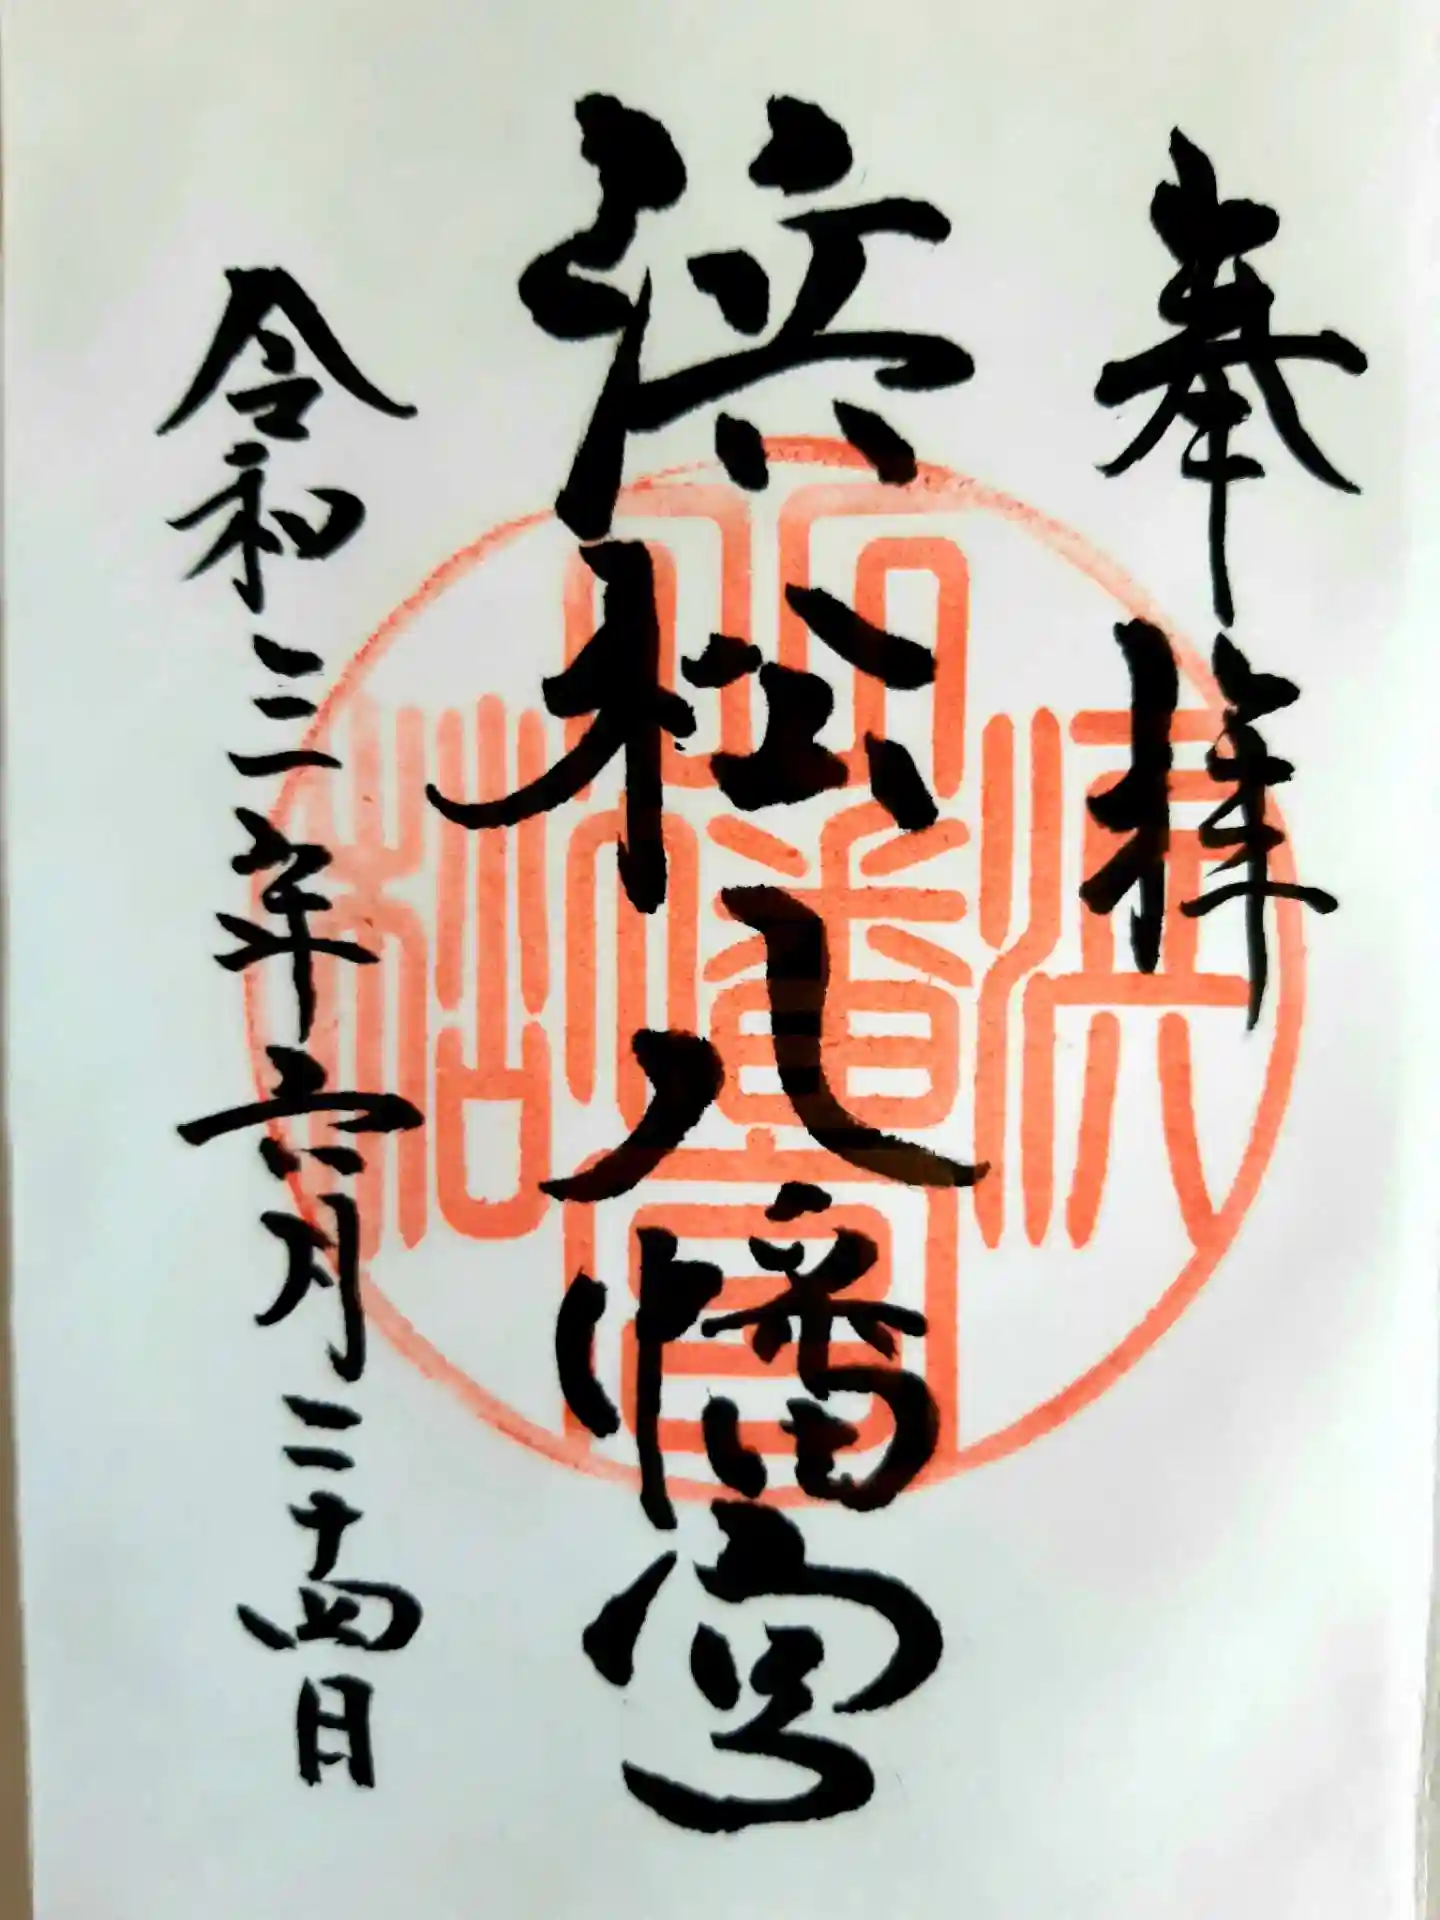 奉拝
浜松八幡宮
令和三年六月二十四日
八幡宮
浜
松